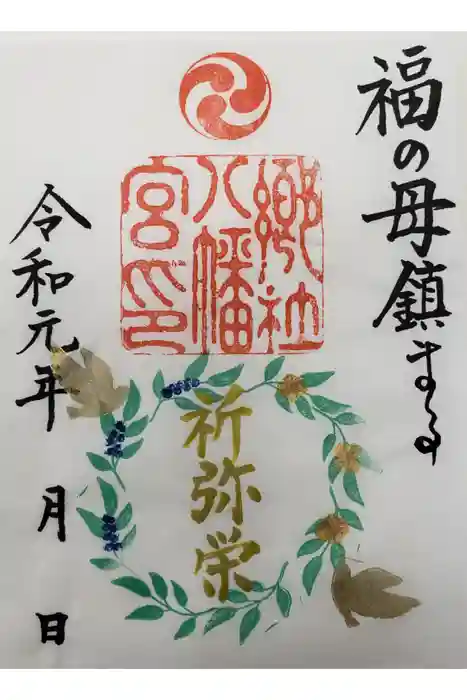 福の母鎮まる
郷社
八幡
宮印
祈弥栄
令和元年 月 日